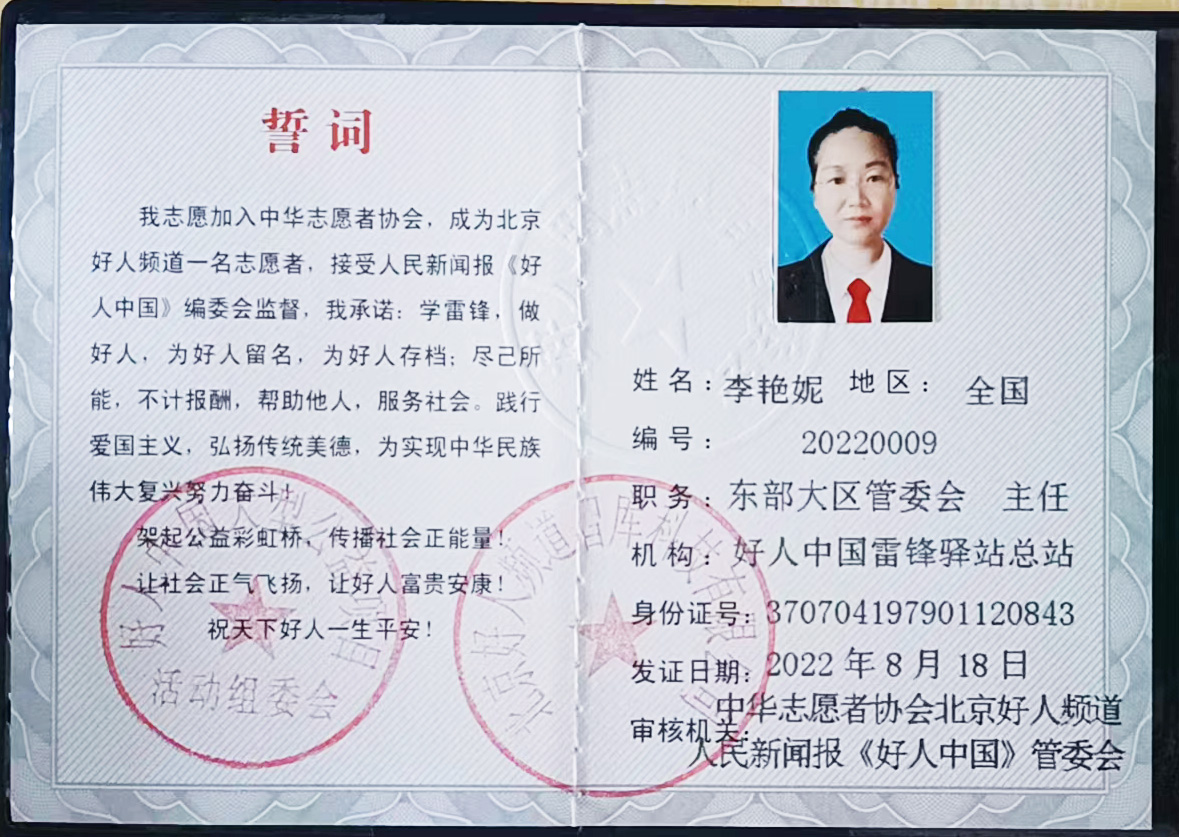 誓词
我志愿加入中华志愿者协会，成为北京
好人频道一名志愿者，接受人民新闻报《好
人中国》编委会监督，我承诺：学雷锋，做
好人，为好人留名，为好人存档；尽己所
能，不计报酬，帮助他人，服务社会。践行
爱国主义，弘扬传统美德，为实现中华民族
伟大复兴努力奋斗！
架起公益彩虹桥，传播社会正能量！
让社会正气飞扬，让好人富贵安康！
祝天下好人一生平安！
活动组委会
北京好人频道智库科技有限公司
姓名：李艳妮 地区：全国
编号：20220009
职务：东部大区管委会 主任
机构：好人中国雷锋驿站总站
身份证号：370704197901120843
发证日期：2022年8月18日
审核机关：中华志愿者协会北京好人频道
人民新闻报《好人中国》管委会